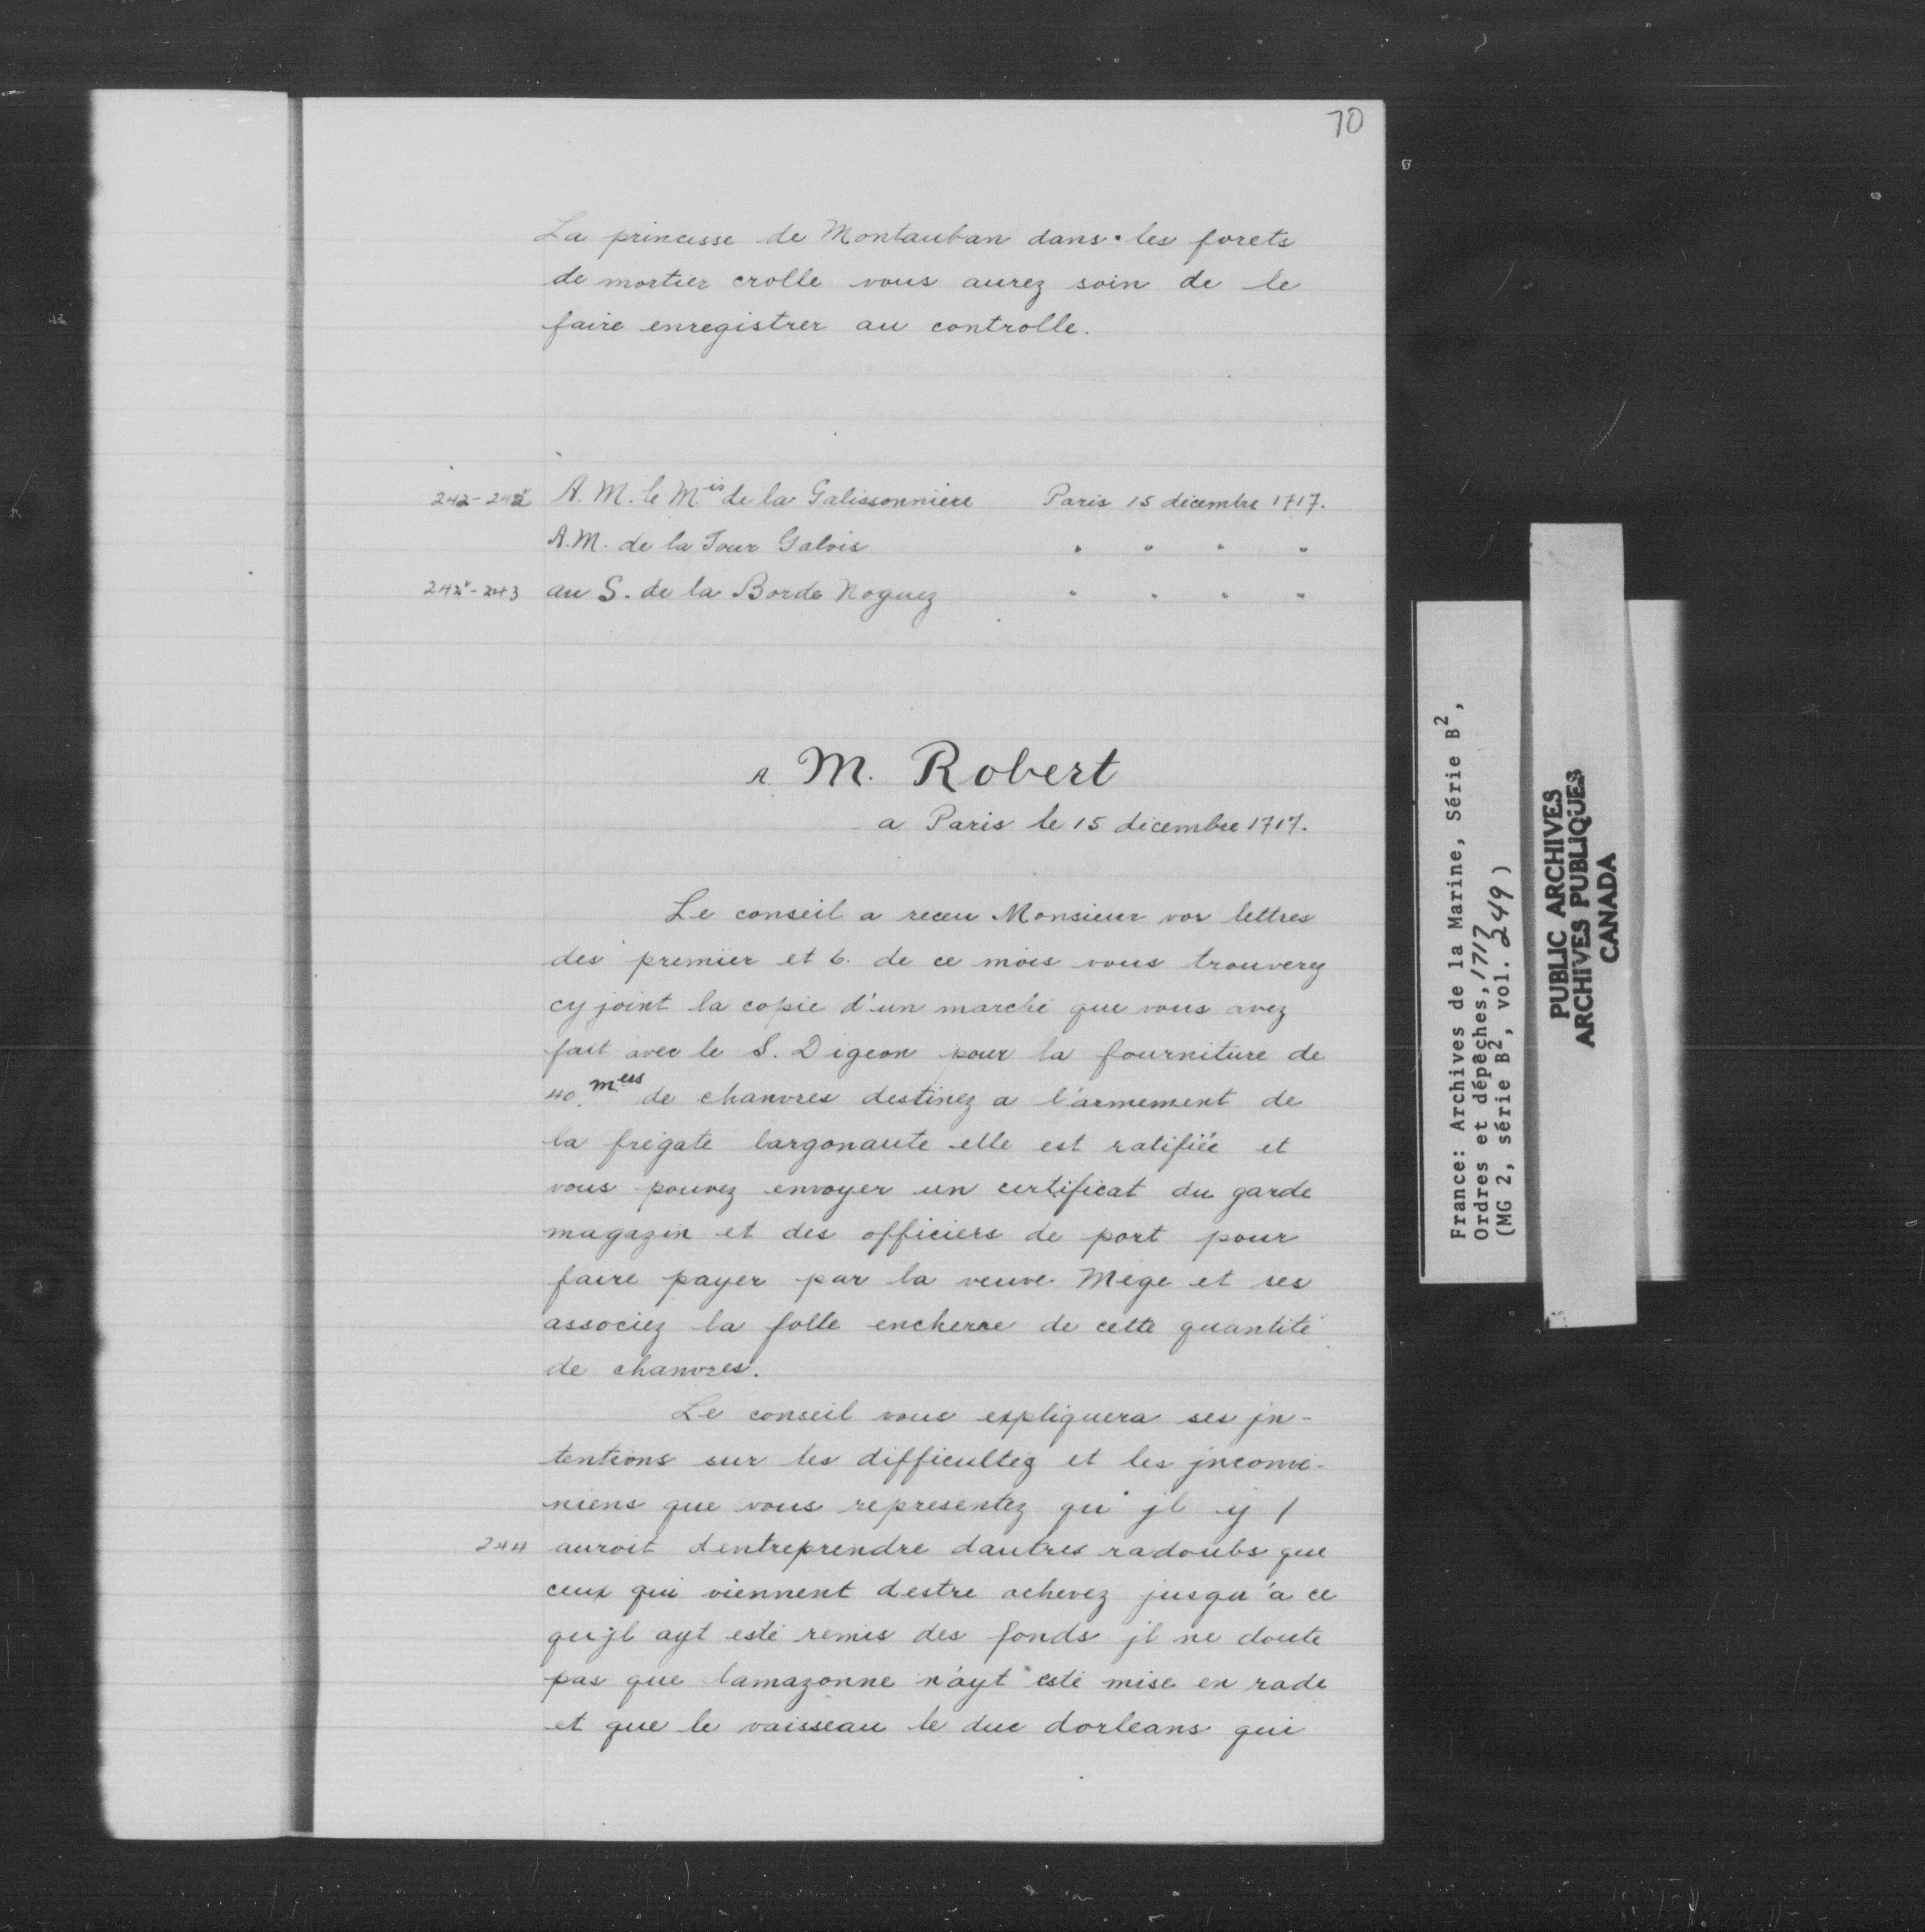 70
La princesse de Montauban dans les forets
de mortier crolle vous aurez soin de le
faire enregistrer au controlle.
242-242v A. M. le Mis de la Galissonniere Paris 15 décembre 1717.
A. M. de la Tour Galois " " " "
242v-243 au S. de la Borde Noguez " " " "
A M. Robert
a Paris le 15 décembre 1717.
Le conseil a receu Monsieur vos lettres
des premier et 6. de ce mois vous trouverez
cy joint la copie d'un marché que vous avez
fait avec le S. Digeon pour la fourniture de
40. mers de chanvres destinez a l'armement de
la frégate largonaute elle est ratifiée et
vous pouvez envoyer un certificat du garde
magazin et des officiers de port pour
faire payer par la veuve Mege et ses
associez la folle encherre de cette quantité
de chanvres.
Le conseil vous expliquera ses jn-
tentions sur les difficultez et les jnconve-
niens que vous representez qu'jl y /
244 auroit dentreprendre dautres radoubs que
ceux qui viennent destre achevez jusqu'a ce
qujl ayt esté remis des fonds jl ne doute
pas que lamazonne n'ayt esté mise en rade
et que le vaisseau le duc dorleans qui
France: Archives de la Marine, Série B2,
Ordres et dépêches, 1717
(MG 2, série B2, vol. 249)
PUBLIC ARCHIVES
ARCHIVES PUBLIQUES
CANADA